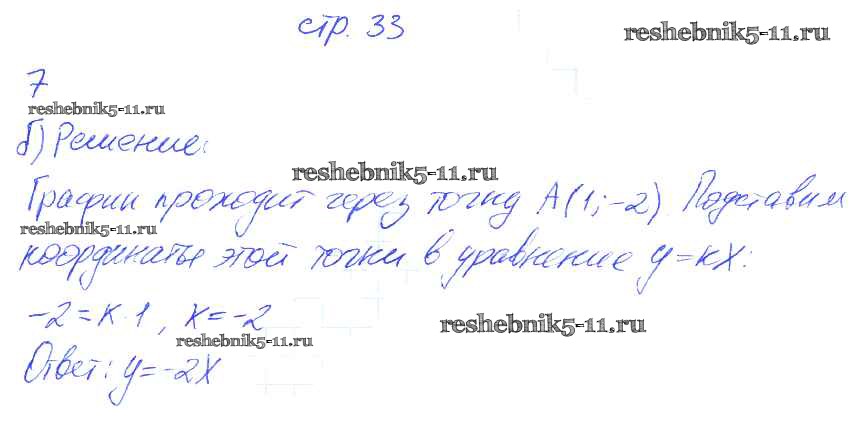 стр. 33
reshebnik5-11.ru
7
reshebnik5-11.ru
б) Решение:
reshebnik5-11.ru
График проходит через точку A(1;-2). Подставим
reshebnik5-11.ru
координаты этой точки в уравнение y=kx:
-2=k·1, k=-2
reshebnik5-11.ru
reshebnik5-11.ru
Ответ: y=-2x